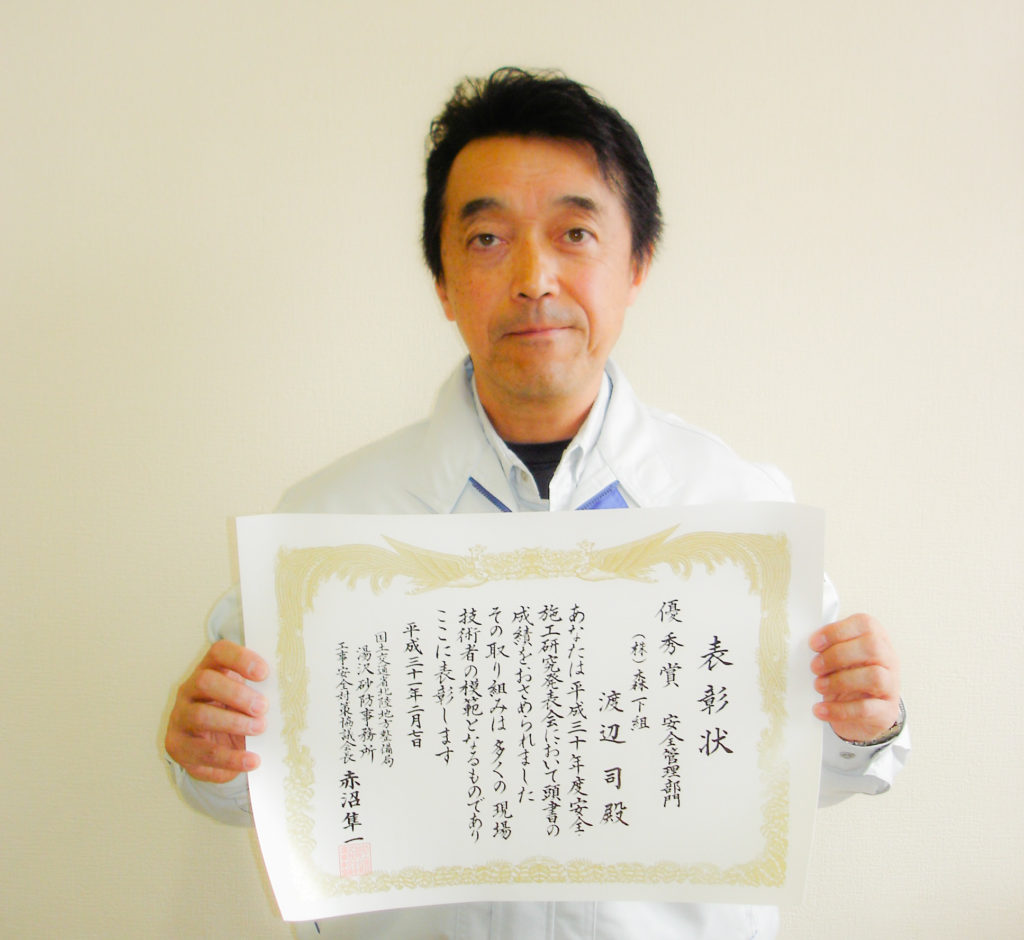 表彰状
優秀賞 安全管理部門
(株)森下組
渡辺 司 殿
あなたは平成三十年度安全・
施工研究発表会において頭書の
成績をおさめられました
その取り組みは多くの現場
技術者の模範となるものであり
ここに表彰します
平成三十一年二月七日
国土交通省北陸地方整備局
湯沢砂防事務所
工事安全対策協議会長 赤沼隼一